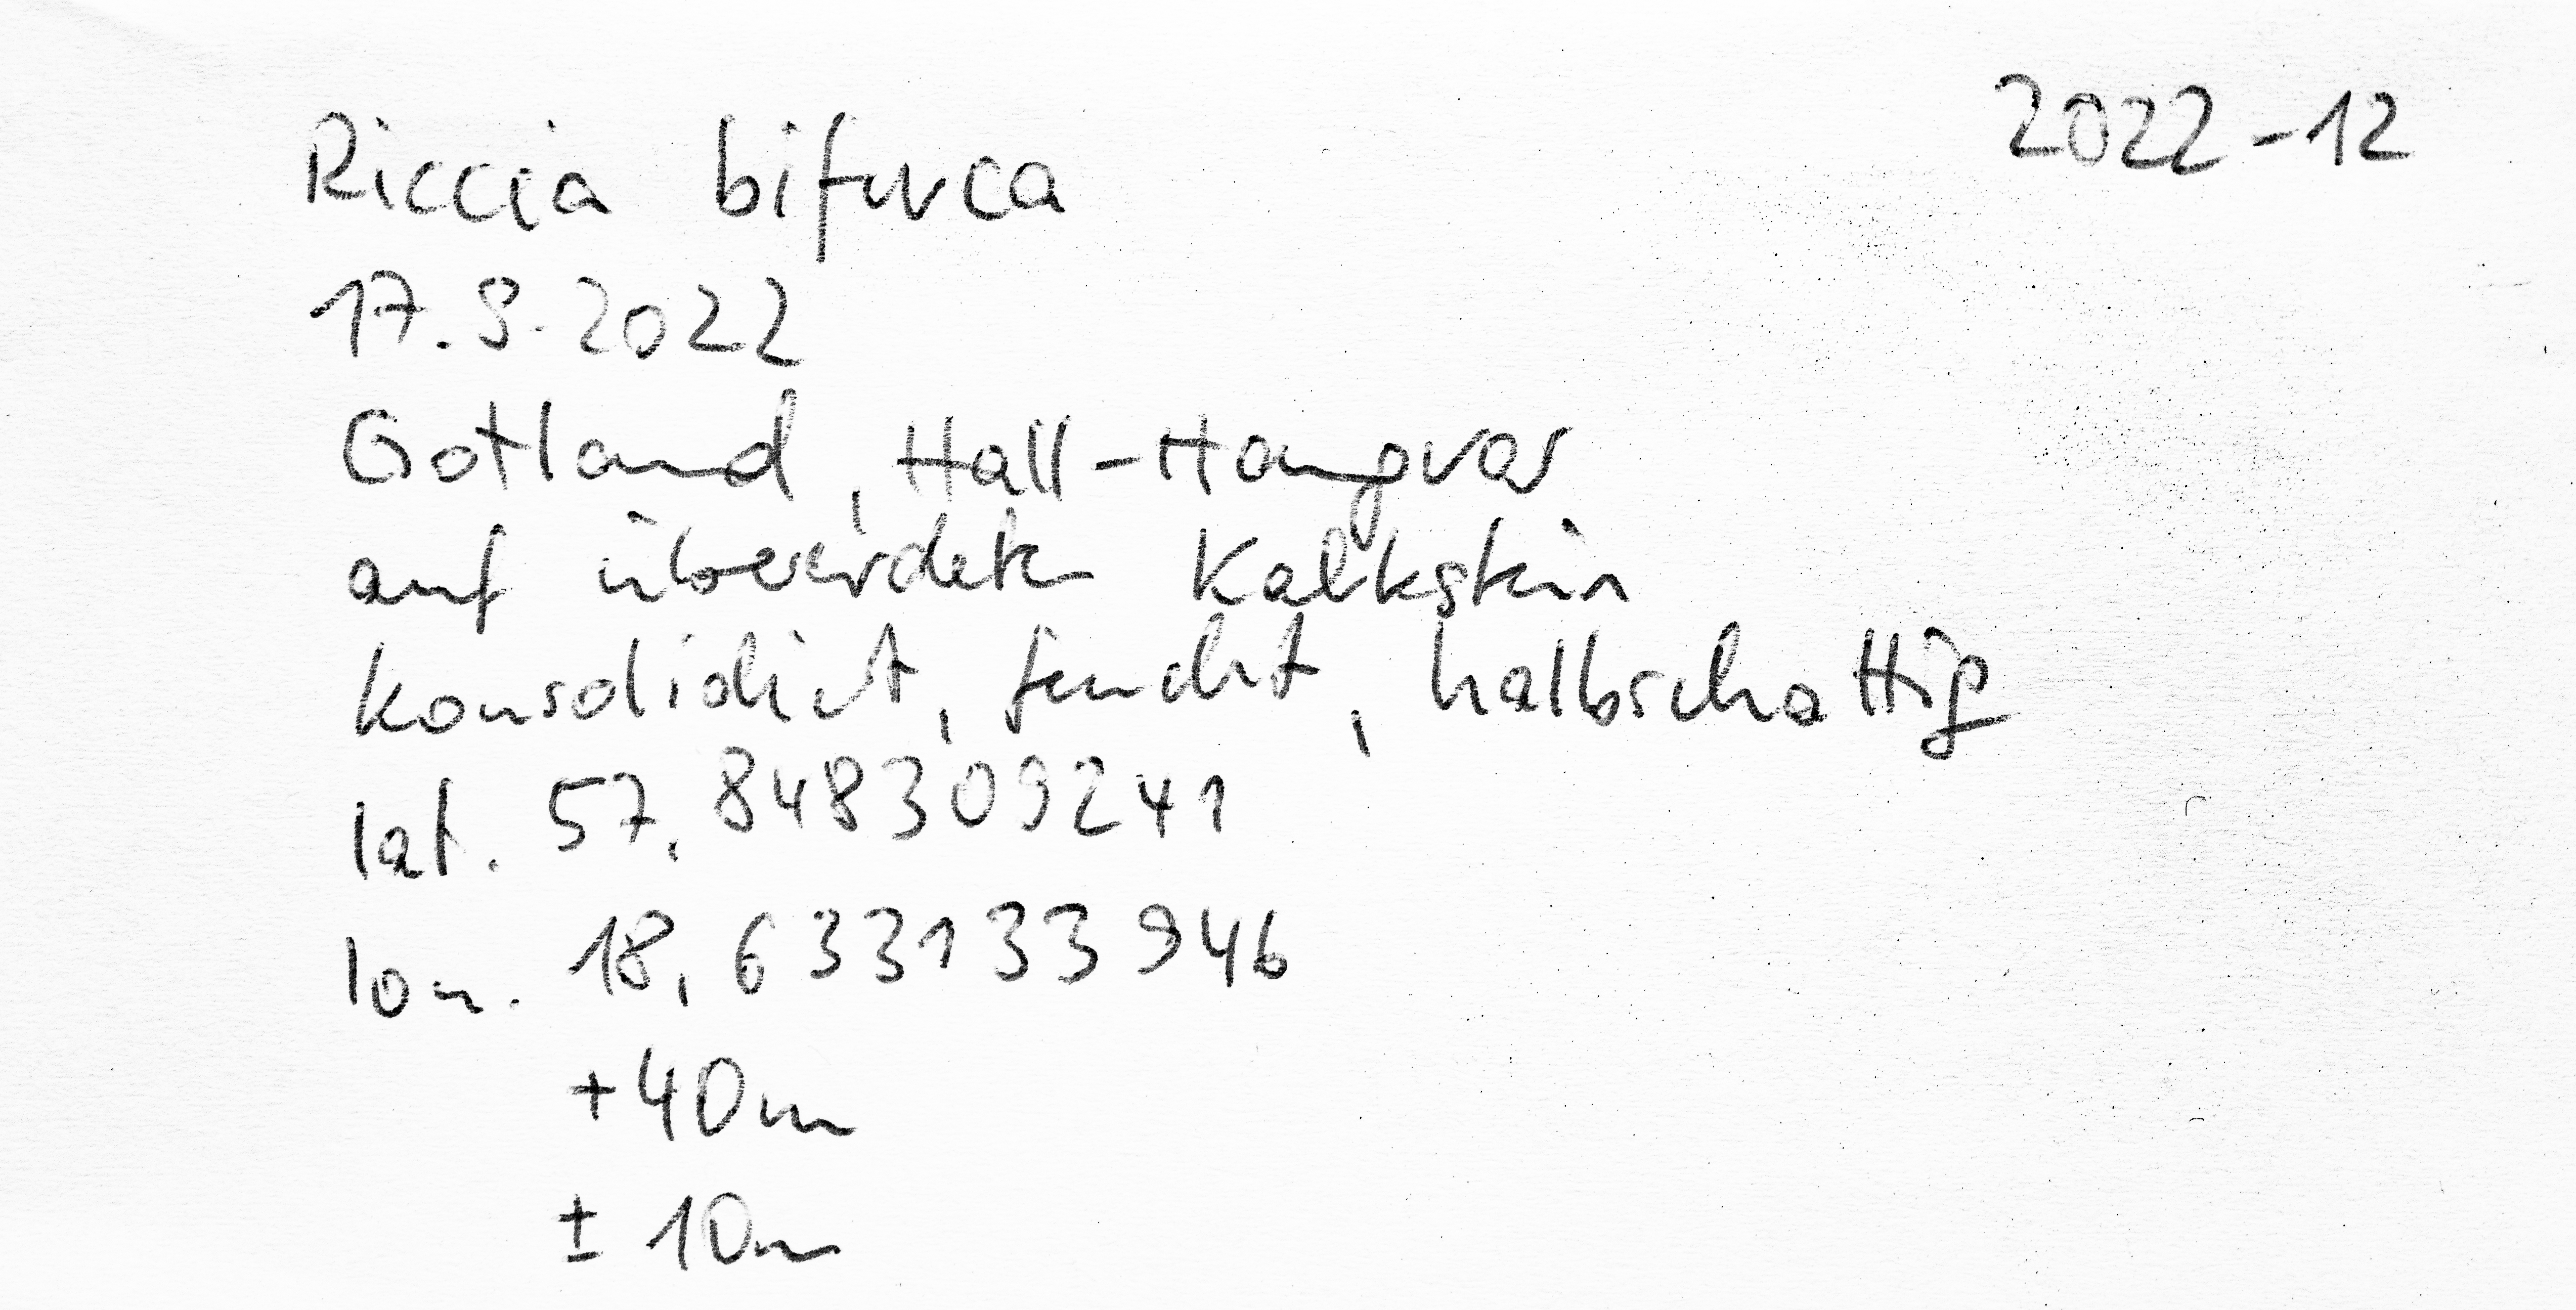 2022-12
Riccia bifurca
17.9.2022
Gotland, Hall-Hangvar
auf übererdeten Kalkstein
konsolidiert, feucht, halbschattig
lat. 57,848309241
lon. 18,633133946
+40m
± 10m